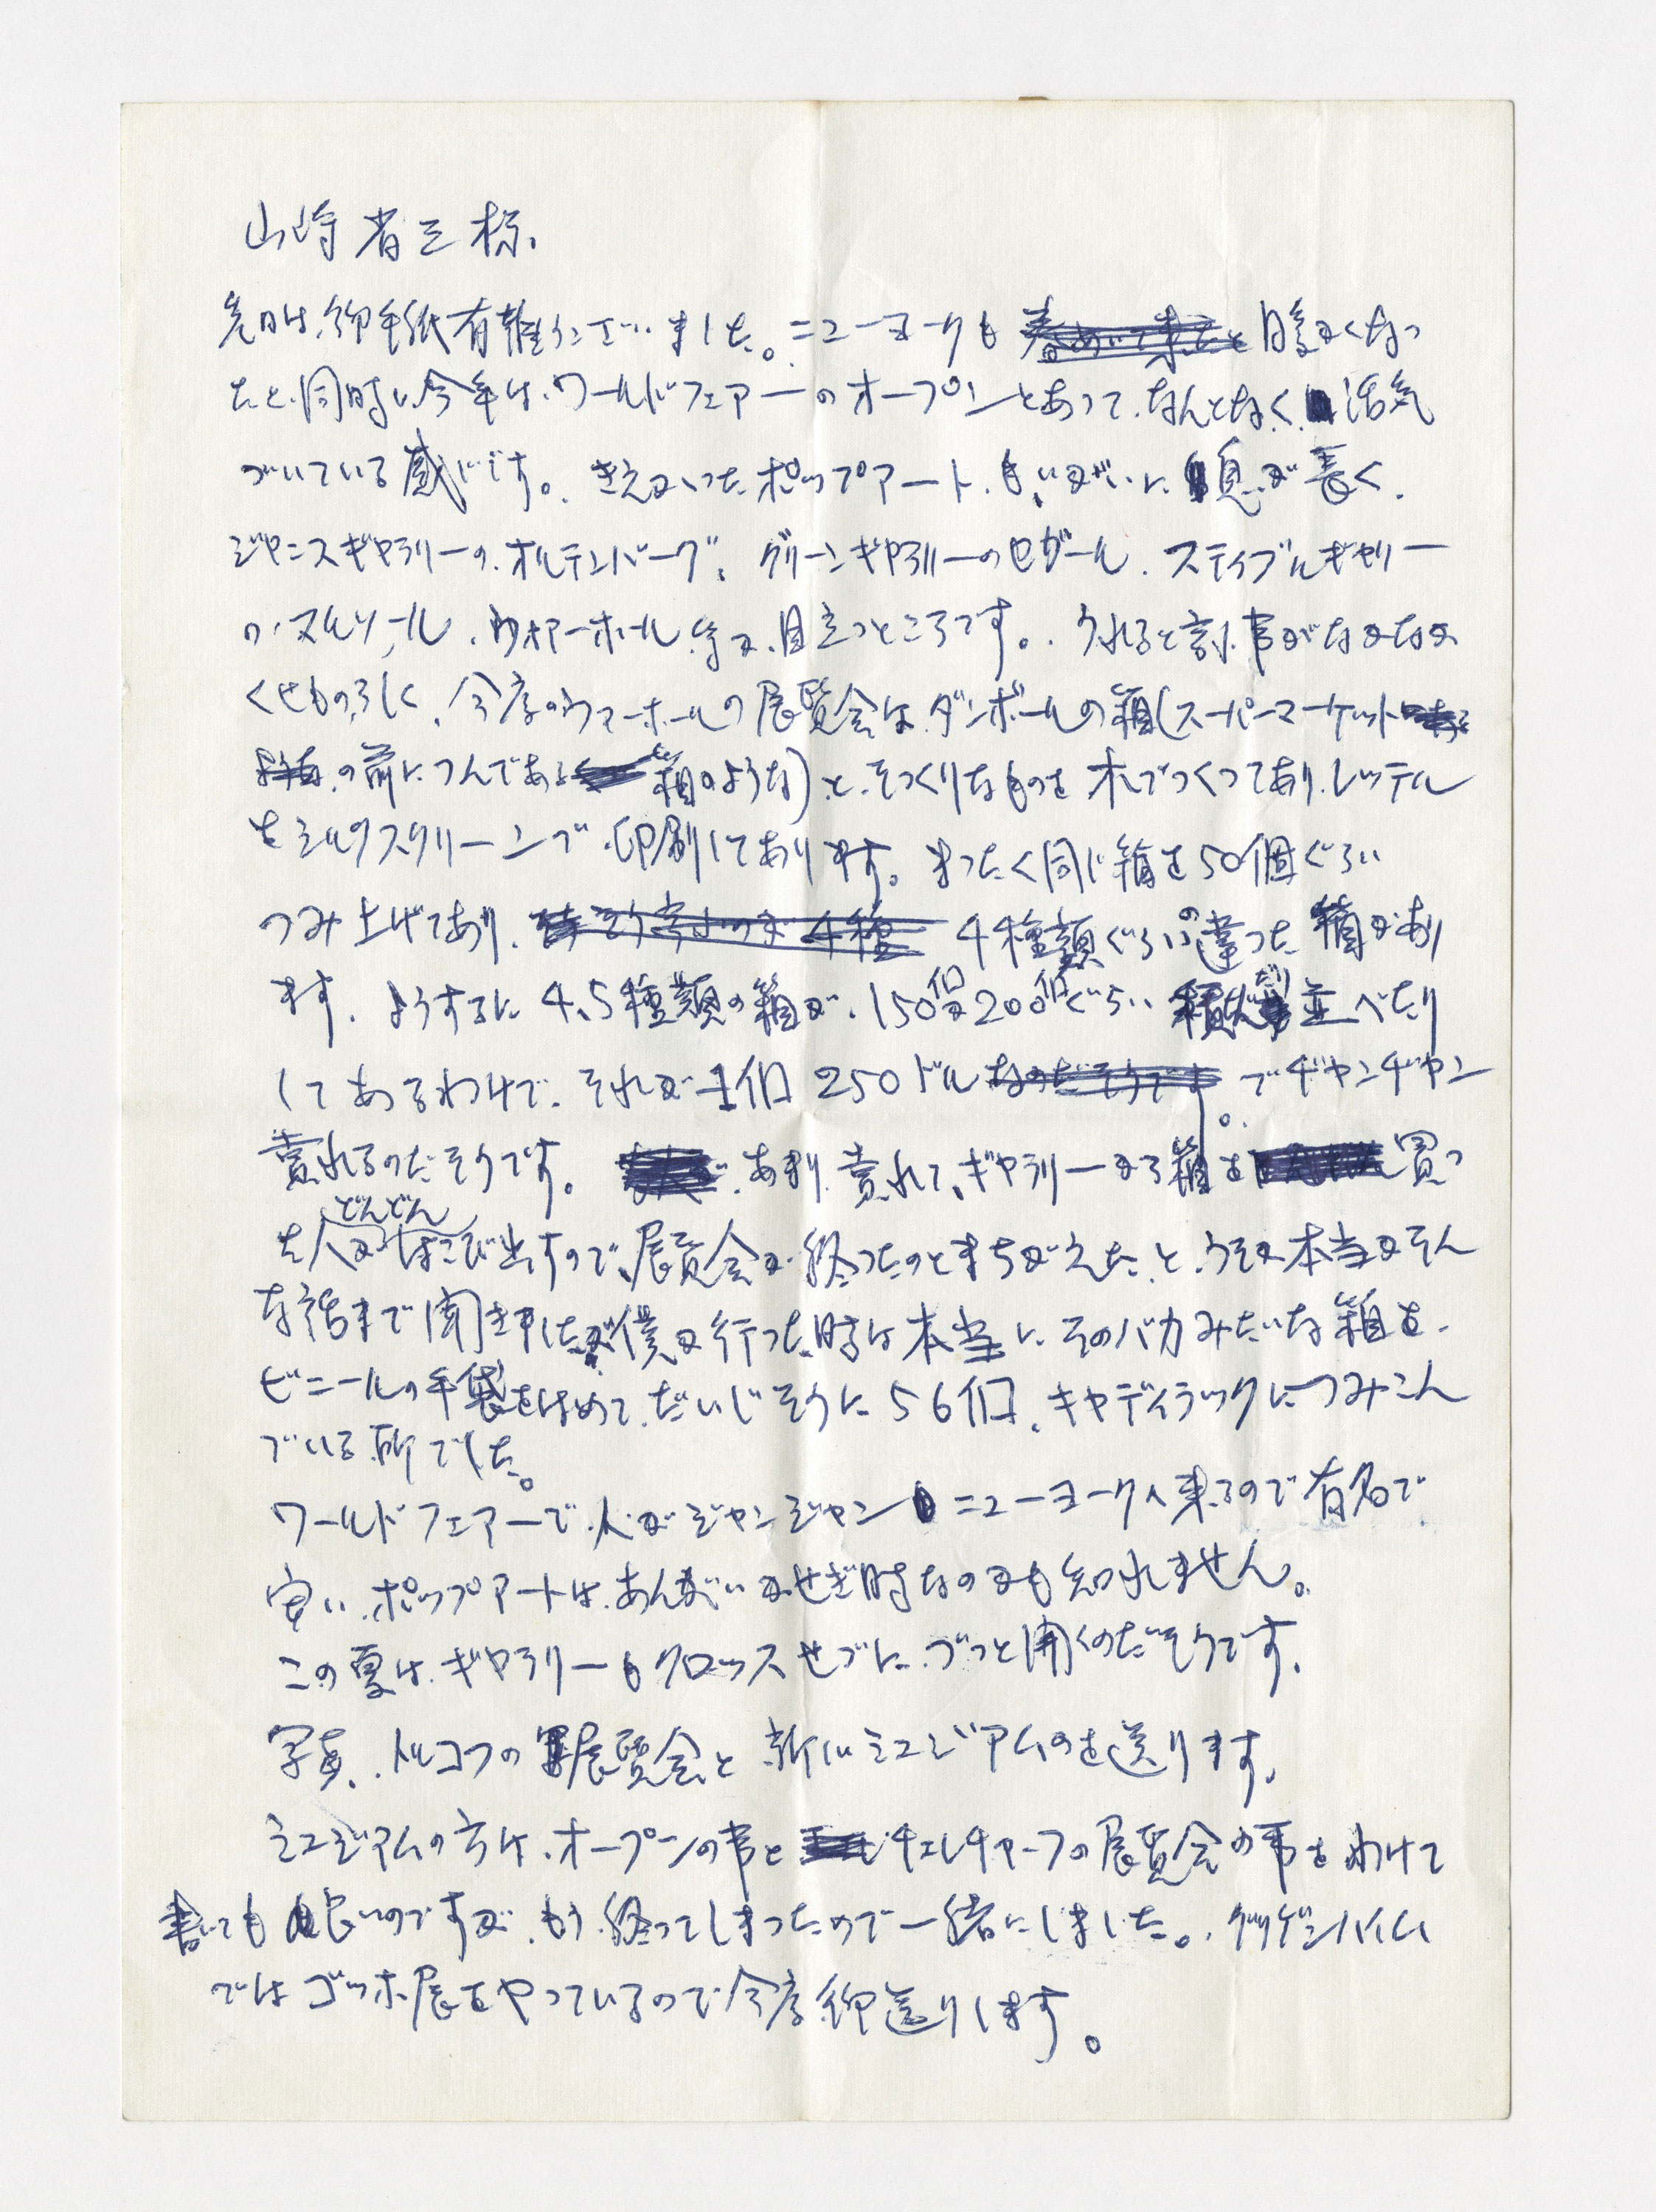 山崎省三様、
先日は、御手紙有難うございました。ニューヨークも 暖かくなっ
たと同時に今年は、ワールドフェアーのオープンとあって、なんとなく、活気
づいている感じです。きえかいったポップアート、も、いがいに息が長く、
ジャニスギャラリーの、オルデンバーグ、グリーンギャラリーのセガール、ステイブルギャラリー
の、マルソール、ウォアーホール、等が、目立つところです。うれると言う事がなかなか
くせものらしく、今度のウァーホールの展覧会は、ダンボールの箱(スーパーマーケット
の前に、つんである箱のような)と、そっくりなものを木でつくってあり、レッテル
をシルクスクリーンで印刷してあります。まったく同じ箱を50個ぐらい
つみ上げてあり、4種類ぐらいの違った箱があり
ます、ようするに4、5種類の箱が、150個か200個ぐらい 積んだり並べたり
してあるわけで、それが1個250ドルでヂャンヂャン
売れるのだそうです。あまり売れて、ギャラリーから箱を買っ
た人がどんどんはこび出すので、展覧会が終ったのとまちがえた、と、うそか本当かそん
な話まで聞きましたが、僕が行った時は本当に、そのバカみたいな箱を、
ビニールの手袋をはめて、だいじそうに56個、キャディラックにつみこん
でいる所でした。
ワールドフェアーで、人がジャンジャンニューヨークへ来るので有名で
安い、ポップアートは、あんがいかせぎ時なのかも知れません。
この夏は、ギャラリーもクロッスせづに、づっと開くのだそうです。
写真、トルコフの展覧会と新しいミュジアムのを送ります。
ミュジアムの方は、オープンの事とチェレチャーフの展覧会の事をわけて
書いても良いのですが、もう終ってしまったので一緒にしました。グッゲンハイム
ではゴッホ展をやっているので今度御送りします。